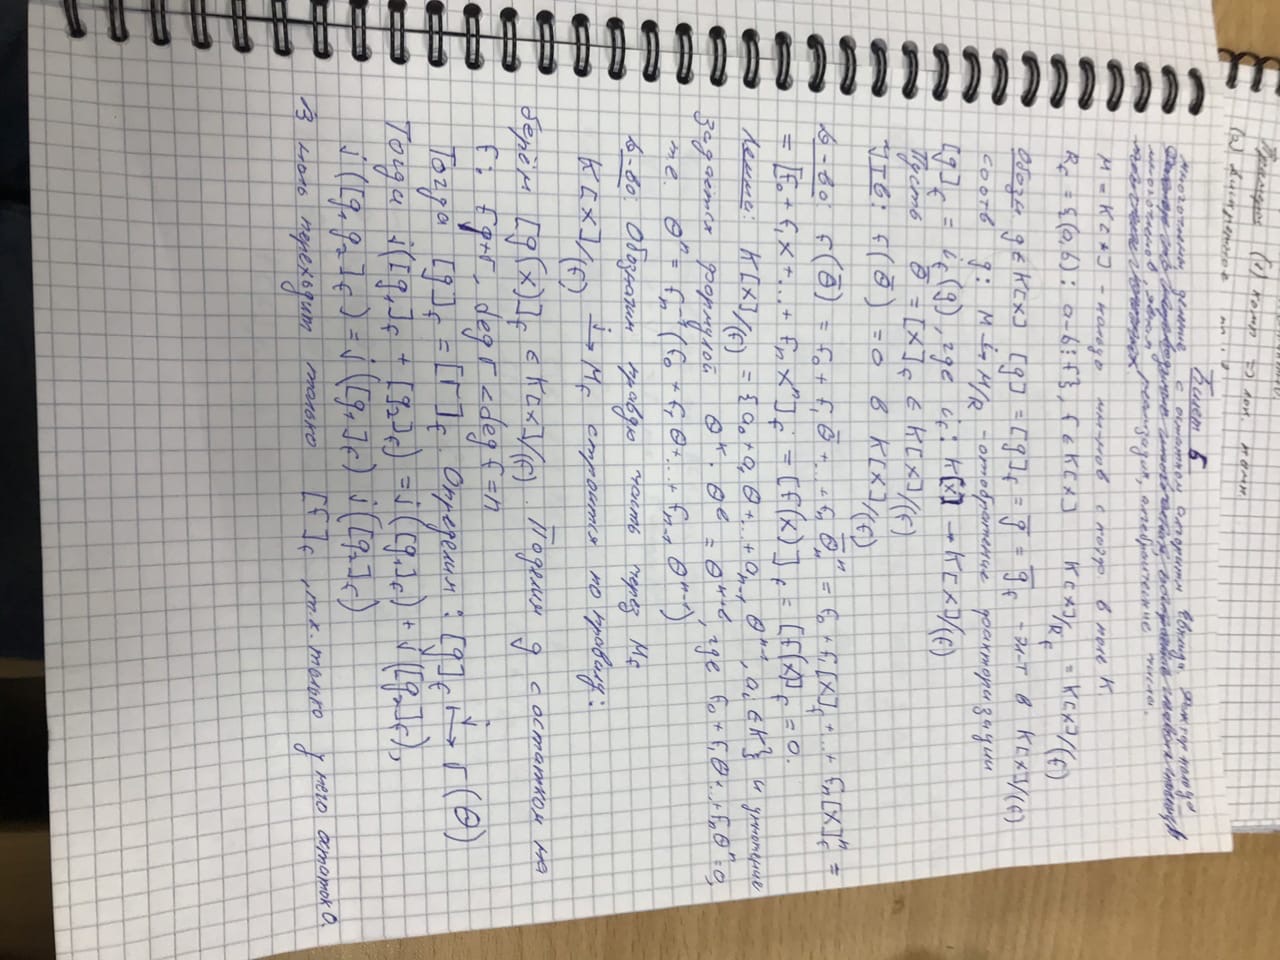 Примеры (1) комп => лок. комп.
(2) дискретное
Билет 5
многочлены, деление с остатком алгоритм Евклида. Фактор кольца
многочленов, явная реализация, алгебраические числа.
M = K[x] - кольцо мн-нов с коэф. в поле K.
R_f = {(a,b): a-b⋮f}, f∈K[x] K[x]/R_f = K[x]/(f)
Обозн. g∈K[x] [g] = [g]_f = g̅ = g̅_f - эл-т в K[x]/(f)
соотв g: M →^i M/R - отображение факторизации
[g]_f = i_f(g), где i_f: K[x] → K[x]/(f)
Пусть Θ̅ = [x]_f ∈ K[x]/(f)
УТВ: f(Θ̅) = 0 в K[x]/(f)
Д-во: f(Θ̅) = f_0 + f_1 Θ̅ +...+ f_n Θ̅^n = f_0 + f_1[x]_f +...+ f_n[x]_f^n =
= [f_0 + f_1 x +...+ f_n x^n]_f = [f(x)]_f = [f(x)]_f = 0.
Лемма: K[x]/(f) = {a_0 + a_1 Θ +...+ a_{n-1} Θ^{n-1}, a_i ∈ K} и умножение
задаётся формулой Θ^k · Θ^l = Θ^{k+l}, где f_0 + f_1 Θ +...+ f_n Θ^n = 0,
т.е. Θ^n = f_n^{-1}(f_0 + f_1 Θ +...+ f_{n-1} Θ^{n-1})
Д-во: Обозначим правую часть через M_f
K[x]/(f) →^j M_f строится по правилу:
берём [g(x)]_f ∈ K[x]/(f). Поделим g с остатком на
f: fq+r, deg r < deg f = n
Тогда [g]_f = [r]_f. Определим: [g]_f ↦^j r(Θ)
Тогда j([g_1]_f + [g_2]_f) = j([g_1]_f) + j([g_2]_f),
j([g_1 g_2]_f) = j([g_1]_f) j([g_2]_f)
В ноль переходит только [f]_f, т.к. только у него остаток 0.